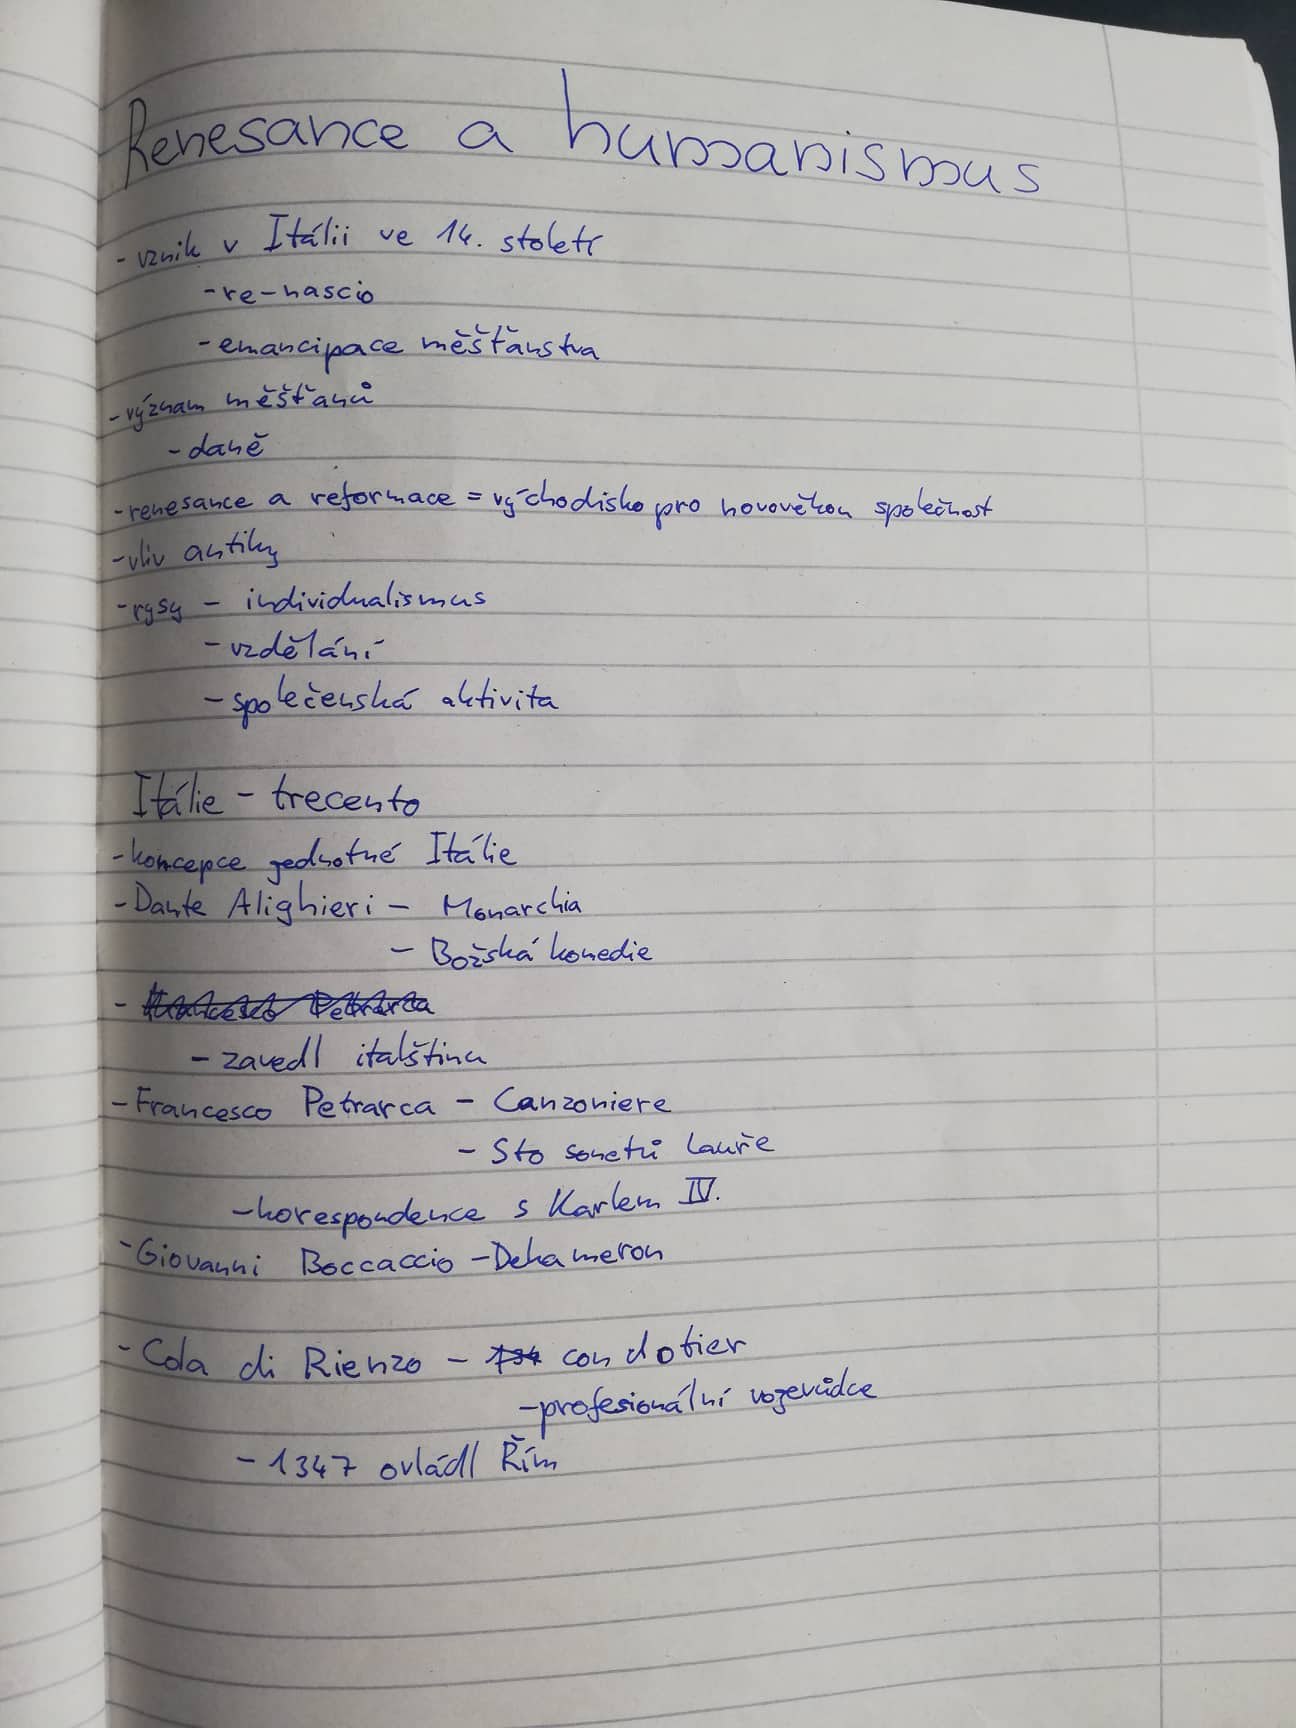 Renesance a humanismus
- vznik v Itálii ve 14. století
- re-nascio
- emancipace měšťanstva
- význam měšťanů
- daně
- renesance a reformace = východisko pro novověkou společnost
- vliv antiky
- rysy - individualismus
- vzdělání
- společenská aktivita
Itálie - trecento
- koncepce jednotné Itálie
- Dante Alighieri - Monarchia
- Božská komedie
- Francesco Petrarca
- zavedl italštinu
- Francesco Petrarca - Canzoniere
- Sto sonetů Lauře
- korespondence s Karlem IV.
- Giovanni Boccaccio - Dekameron
- Cola di Rienzo - 134 condotier
- profesionální vojevůdce
- 1347 ovládl Řím